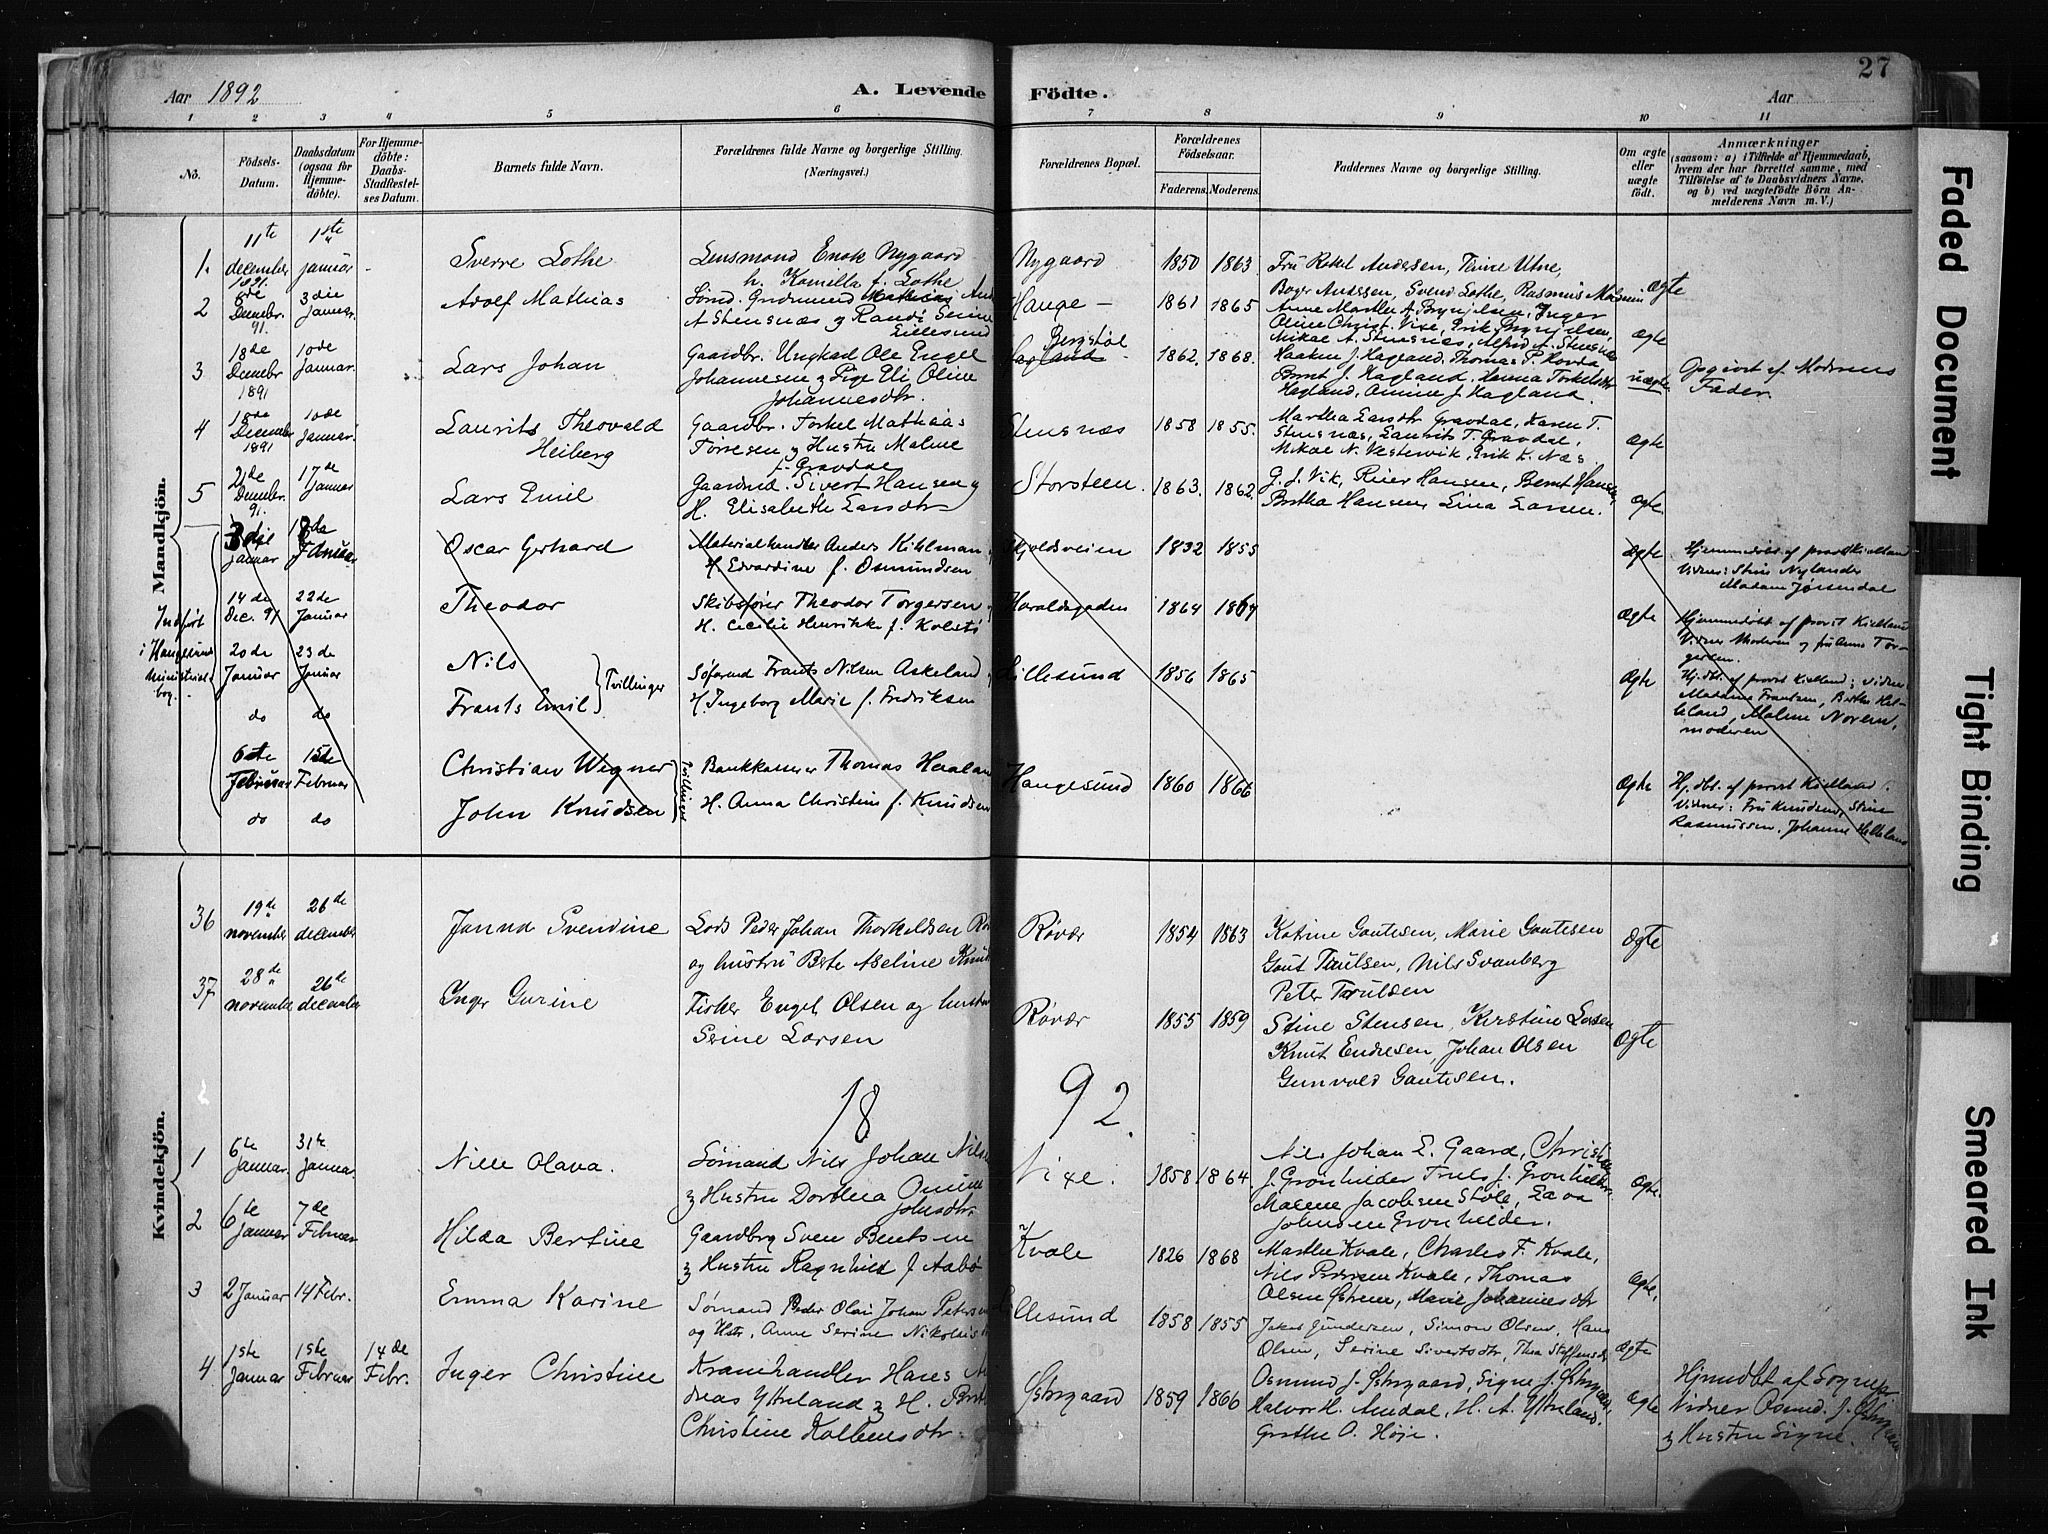 27
Aar 1892
A. Levende Födte.
Aar
1 2 3 4 5 6 7 8 9 10 11
No.
Födsels-
Datum.
Daabsdatum
(ogsaa for
Hjemme-
döbte).
For Hjemme-
döbte:
Daabs-
Stadfæstel-
ses Datum.
Barnets fulde Navn.
Forældrenes fulde Navne og borgerlige Stilling.
(Næringsvei.)
Forældrenes Bopæl.
Forældrenes
Födselsaar.
Faderens.
Moderens.
Faddernes Navne og borgerlige Stilling.
Om ægte
eller
uægte
födt.
Anmærkninger
(saasom: a) i Tilfælde af Hjemmedaab,
hvem der har forrettet samme, med
Tilföielse af to Daabsvidners Navne,
og b) ved uægtefödte Börn An-
melderens Navn m. V.)
Mandkjön.
1. 11te december 1891. 1ste januar Sverre Lothe
Lensmand Enok Nygaard
h. Kamilla f. Lothe
Nygaard 1850 1863
Fru Rakel Andersen, Tine Utne,
Svend Lothe, Rasmus
Ægte
2 8de Decembr. 91. 3die Januar. Adolf Mathias
Sømd. Gudmund Mathias
A Stensnæs og Randi Serine
Lillesund
Hauge – 1861 1865
Anne Marthe A. Brynjelsen, Inger
Oline Christ. Vixe, Erik Brynjelsen,
Mikal A. Stensnæs, Alfred A. Stensnæs
Ægte
3 18de Decembr 1891 10de Januar. Lars Johan
Gaardbr. Ungkad Ole Engel
Johannesen & Pige Eli Oline
Johannesdtr.
Bergstøl
Hagland 1862. 1868.
Haaken J. Hagland, Thomas P. Honda
Bernt J. Hagland, Hanna Torkelsdtr
Hagland, Amine J. Hagland.
uægte
Opgivet af Moderens
Fader
4 18de Decembr 1891 10de Januar. Laurits Theovald
Heiberg
Gaardbr. Torkel Mathias
Tørresen og Hustru Malene
f. Gravdal
Stensnæs 1858 1855.
Martha Larsdtr Gravdal, Karen T.
Stensnæs, Laurits T. Gravdal,
Mikal N. Vestervik, Erik K. Næs.
Ægte
5 2den Decembr. 91. 17de Januar Lars Emil
Gaardmd. Sivert Hansen og
H. Elisabeth Larsdtr
Storsteen. 1863. 1862.
G. J. Vik, Reier Hansen, Bernt Hansen,
Bertha Hansen, Lina Larsen.
Ægte.
Indført
i Haugesunds
Ministerial-
bog.
3die januar 18da Januar Oscar Gerhard
Materialhandler Anders Kihlman
H. Edvardine f. Osmundsen
Skjoldsveien 1832 1855
Ægte
Hjemmedøbt af provst Kielland
Vidner: Stine Nylander
Madam Jørsendal
14de Dec. 91 22de Januar Theodor
Skibsfører Theodor Torgersen
H. Cecilie Henrikke f. Kolstø
Haraldsgaden 1864 1864
Ægte
Hjemmedøbt af provst Kielland
Vidner Moderen og fru Anna Tor-
gersen.
20de Januar 23de Januar Nils
Frants Emil
Tvillinger
Søfarend Frants Nilsen Askeland
H. Ingeborg Marie f. Fredriksen
Lillesund 1856 1865
do do
Ægte
Hj.dbt. af provst Kielland: Vidner:
Madame Frantsen, Berthe Hel-
leland, Malene Norem,
moderen
6te Februar 15de Februar Christian Wegner
John Knudsen
Tvillinger
Bankkasserer Thomas Haaland
H. Anna Christine f. Knudsen
Haugesund 1860 1866
do do
Ægte
Hj.dbt. af provst Kielland.
Vidner: Fru Knudsen, Stine
Rasmussen, Johanne Helleland
Kvindekjön.
36 19de november 26de december Janna Svendine
Lods Peder Johan Thorkeldsen
og hustru Berte Aseline
Røvær 1854 1863
Katrine Gautesen, Marie Gautesen
Gaut Truelsen, Nils Svanberg
Peter Truelsen
Ægte
37 28de november 26de december Inger Gurine
Fisker Engel Olsen og hustru
Serine Larsen
Røvær 1855 1859
Stine Stensen, Kirstine Larsen
Knut Endresen, Johan Olsen
Gunvald Gautesen.
Ægte
18 92.
1 6te Januar. 31te Januar. Nille Olava.
Sømand Nils Johan
& Hustru Dorthea Omine
Johnsdtr.
Vixe. 1858 1864
Nils Johan L. Gaard,
J. Grønhilder Truls J. Grønhilder
Malene Jacobsen Støle,
Johnsen Grønhilder.
Ægte.
2 6te Januar 7de Februar Hilda Bertine
Gaardbrg Sven Bentsen
& Hustru Ragnhild f. Aabø
Kvale 1826 1868
Marthe Kvale, Charles F. Kvale,
Nils Pedersen Kvale, Thomas
Olsen Østrem, Marie Johannesdtr
Ægte.
3 2 Januar 14 Febr. Emma Karine
Sømand Peder Olai Johan
og Hstr. Anne Serine
Lillesund 1858 1855
Jakob Gundersen, Simon Olsen, Hans
Olsen, Serine Sivertsdtr, Thea Steffensdtr
Ægte
4 1ste Januar 1ste Februar 14de Febr. Inger Christine
Kramhandler Hans
Ytreland & H.
Christine Kolbensdtr.
Østrgaard 1859 1866
Osmund J. Østrgaard, Signe J. Østrgaard,
Halvor H. Amdal, H. A. Ytreland.
Grethe O. Høie.
Ægte
Hjmdbt af Sognepr
Vidner Osmd. J. Østrgaard
& Hustru Signe.
Faded Document
Tight Binding
Smeared Ink